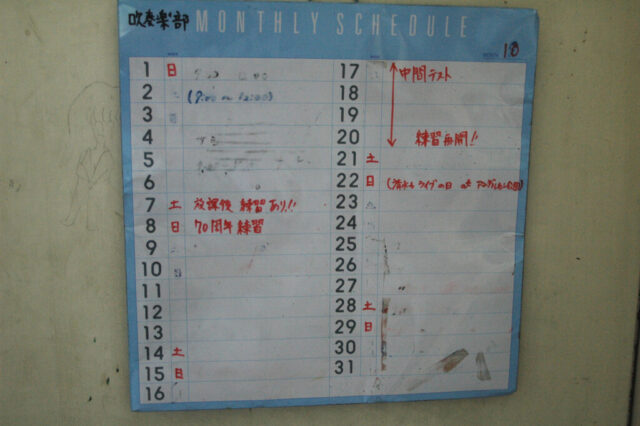 吹奏楽部 MONTHLY SCHEDULE
10
1 日
2 (9:00~12:00)
3
4
5
6
7 土 放課後 練習あり!!
8 日 70周年 練習
9
10
11
12
13
14 土
15 日
16
17 中間テスト
18
19
20 練習再開!!
21 土
22 日
23
24
25
26
27
28 土
29 日
30
31